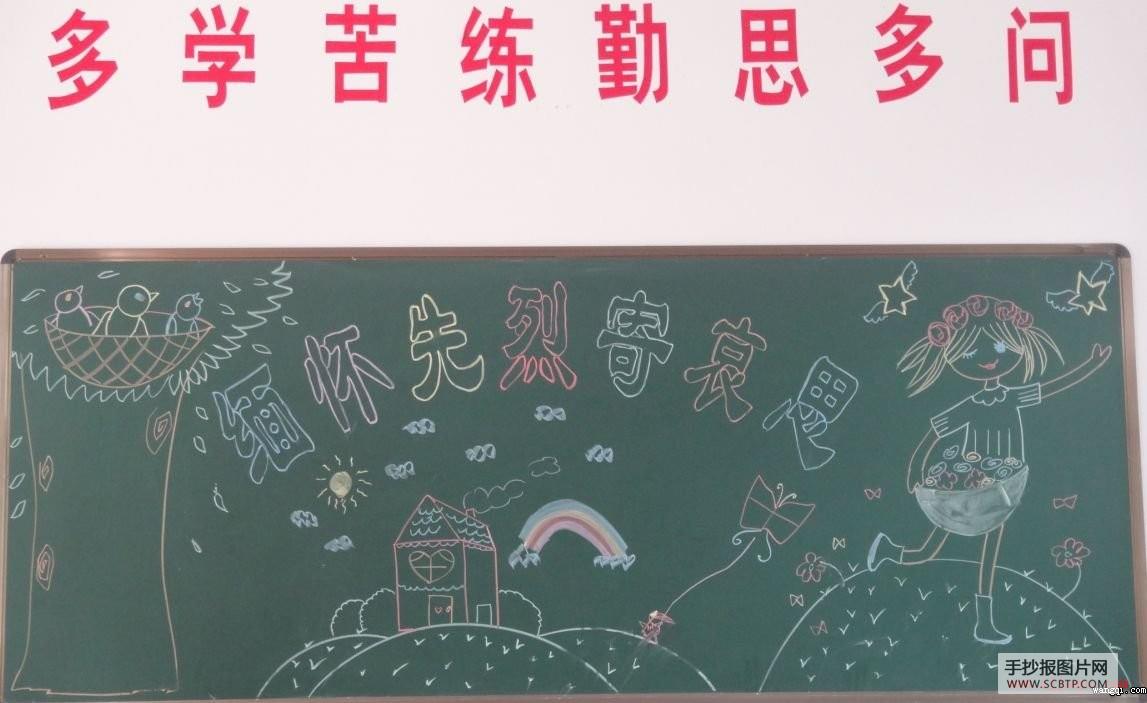 多学苦练勤思多问
缅怀先烈寄哀思
手抄报图片网
WWW.SCBTP.COM
wangqi.com